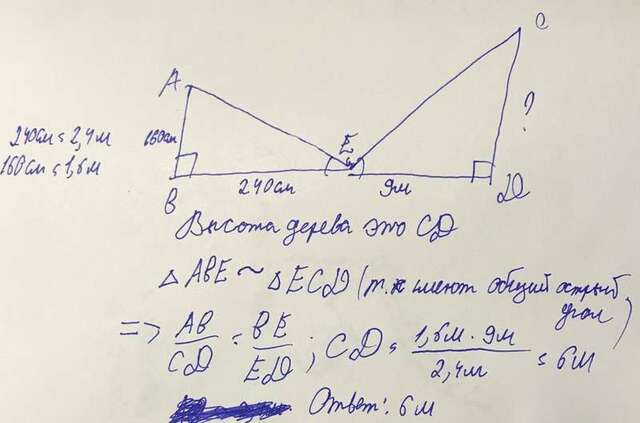 C
A
240см = 2,4м
160см
E
?
160см = 1,6м
B
240см
9м
D
Высота дерева это CD
△ ABE ~ △ ECD (т.к имеют общий острый
угол)
=> AB/CD = BE/ED ; CD = 1,6м · 9м/2,4м = 6м
Ответ: 6м